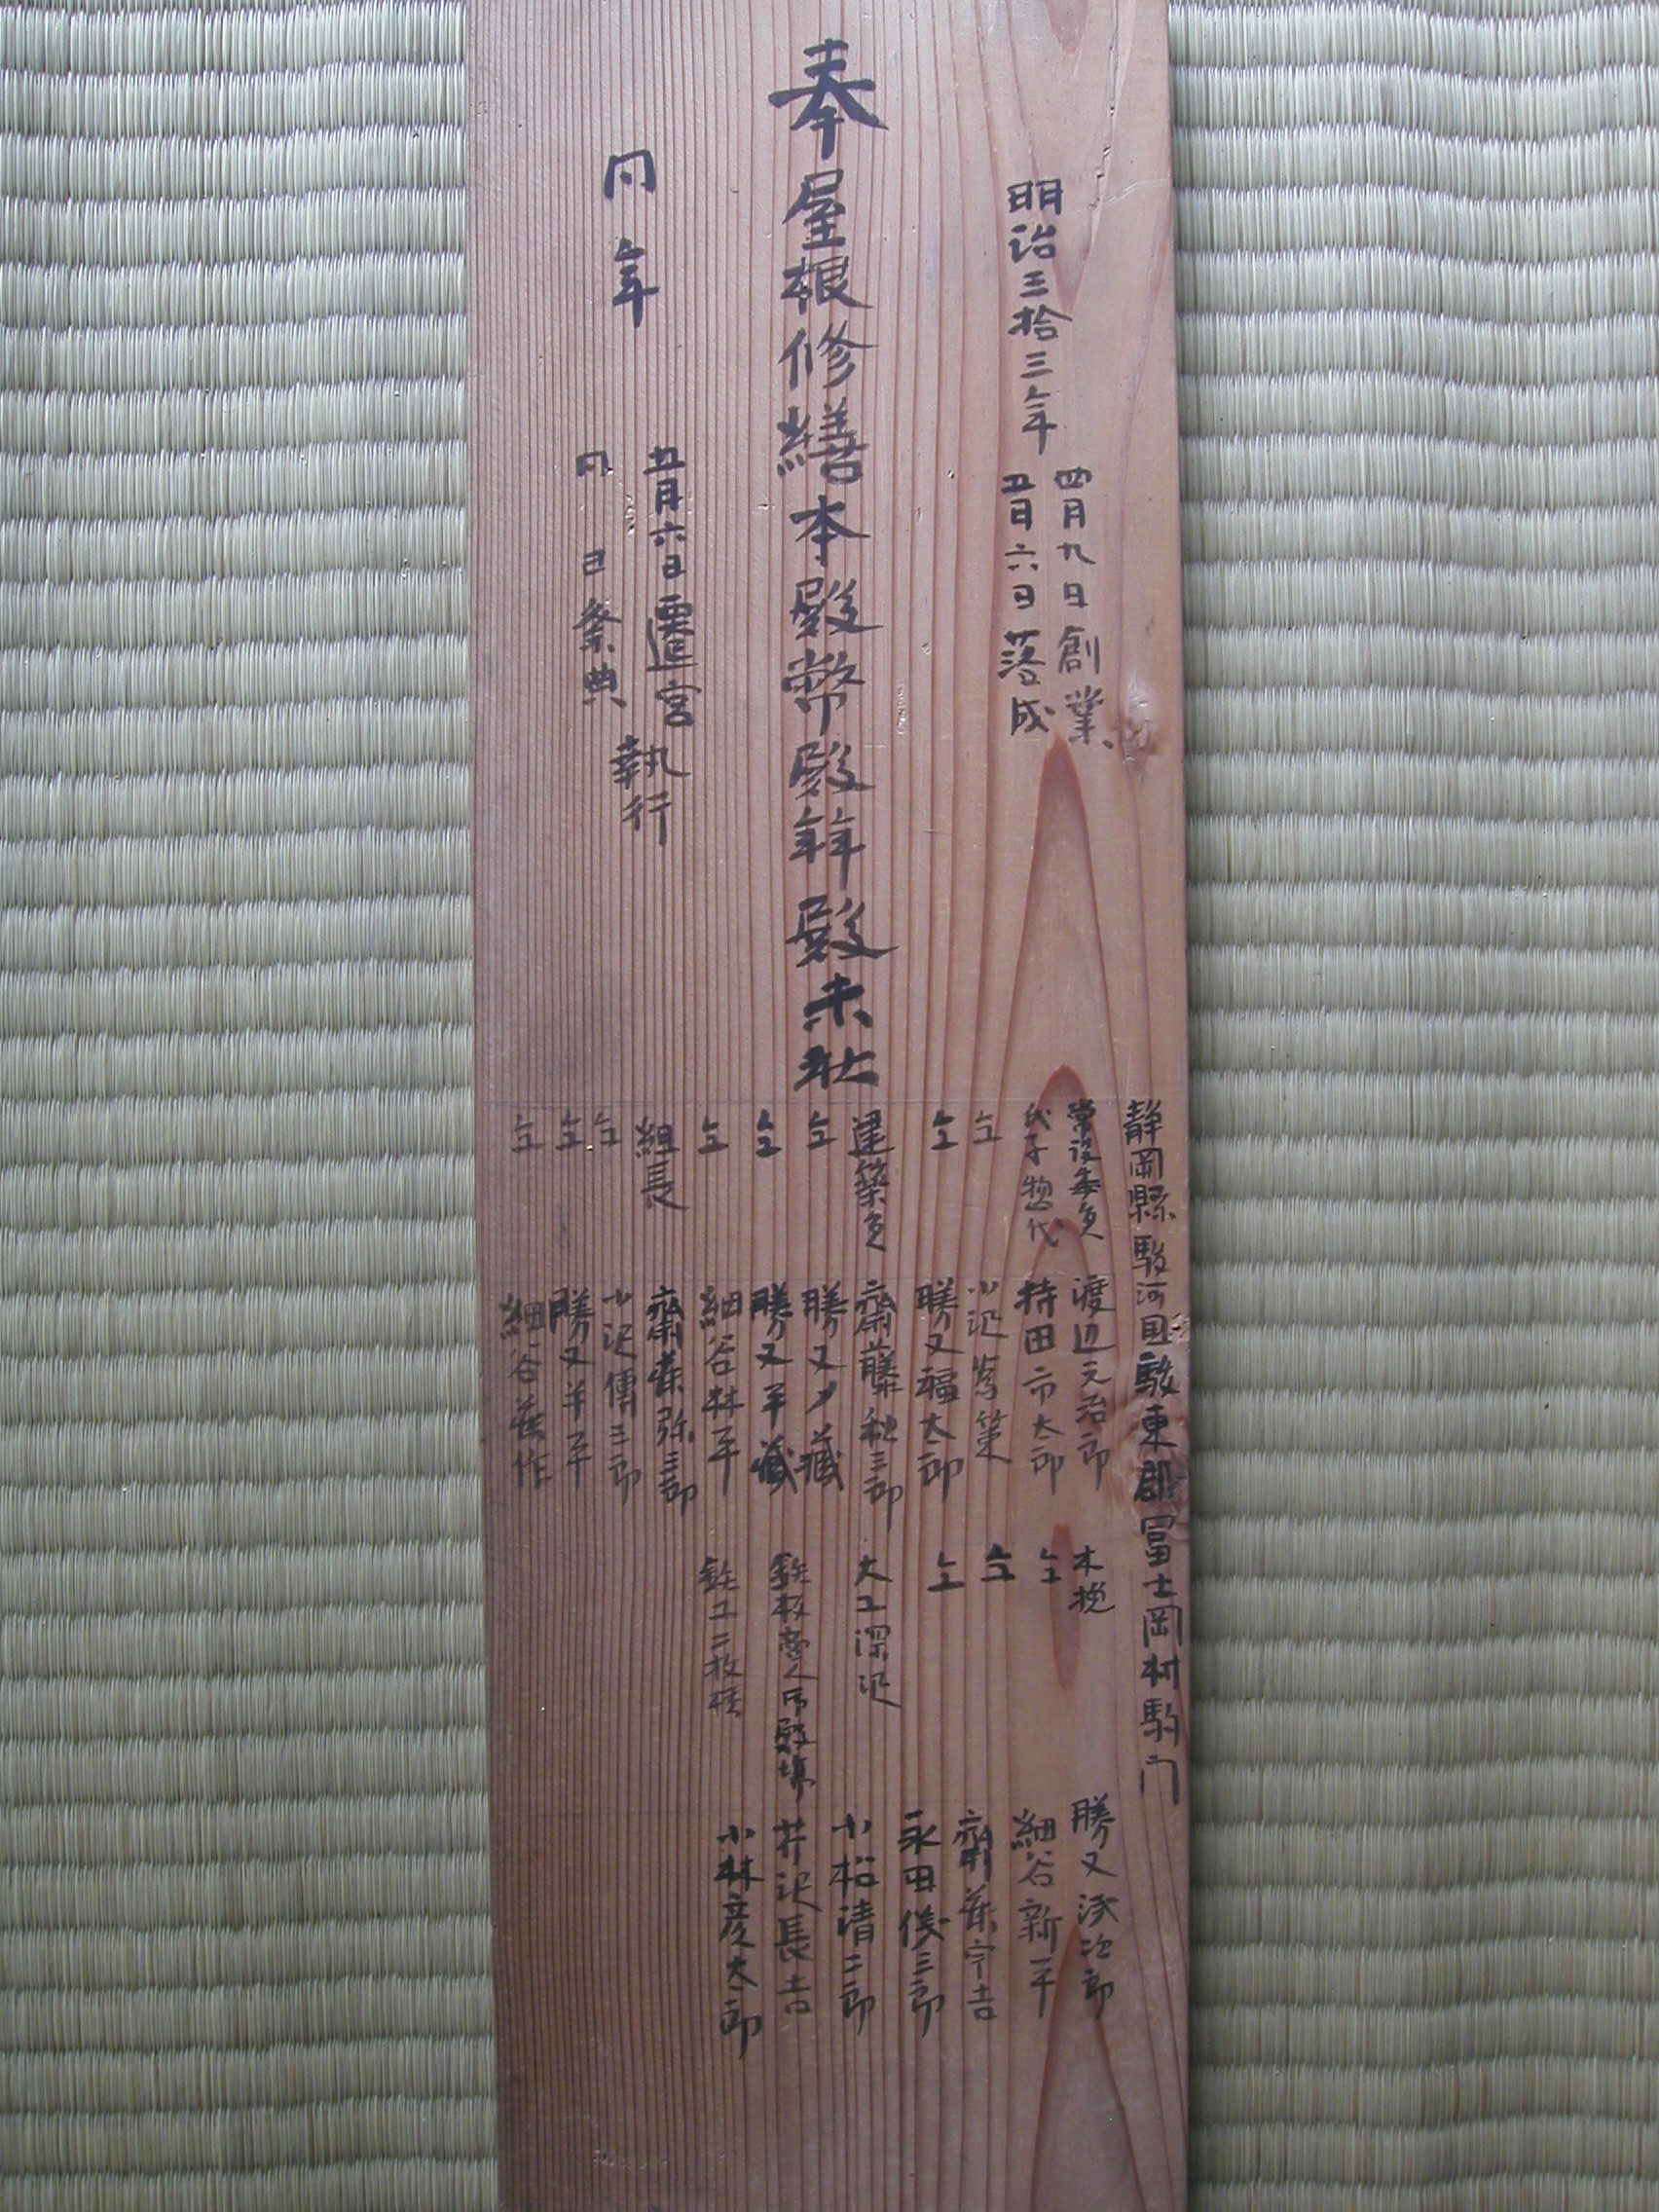 明治三拾三年
四月九日創業
五月六日落成
奉屋根修繕本殿幣殿拜殿末社
同年
五月六日遷宮
同日祭典
執行
静岡縣駿河國駿東郡冨士岡村駒門
常設委員 渡辺元治郎
氏子惣代 持田市太郎
仝 小沢
仝 勝又福太郎
建築員 齋藤
仝 勝又
仝 勝又半藏
仝 細谷林平
組長 齋藤弥三郎
仝 小沢傳三郎
仝 勝又半平
仝 細谷藤作
木挽 勝又 次郎
仝 細谷新平
仝 齋藤宇吉
仝 永田俊三郎
大工深沢 小松清二郎
芹沢長吉
小林彦太郎